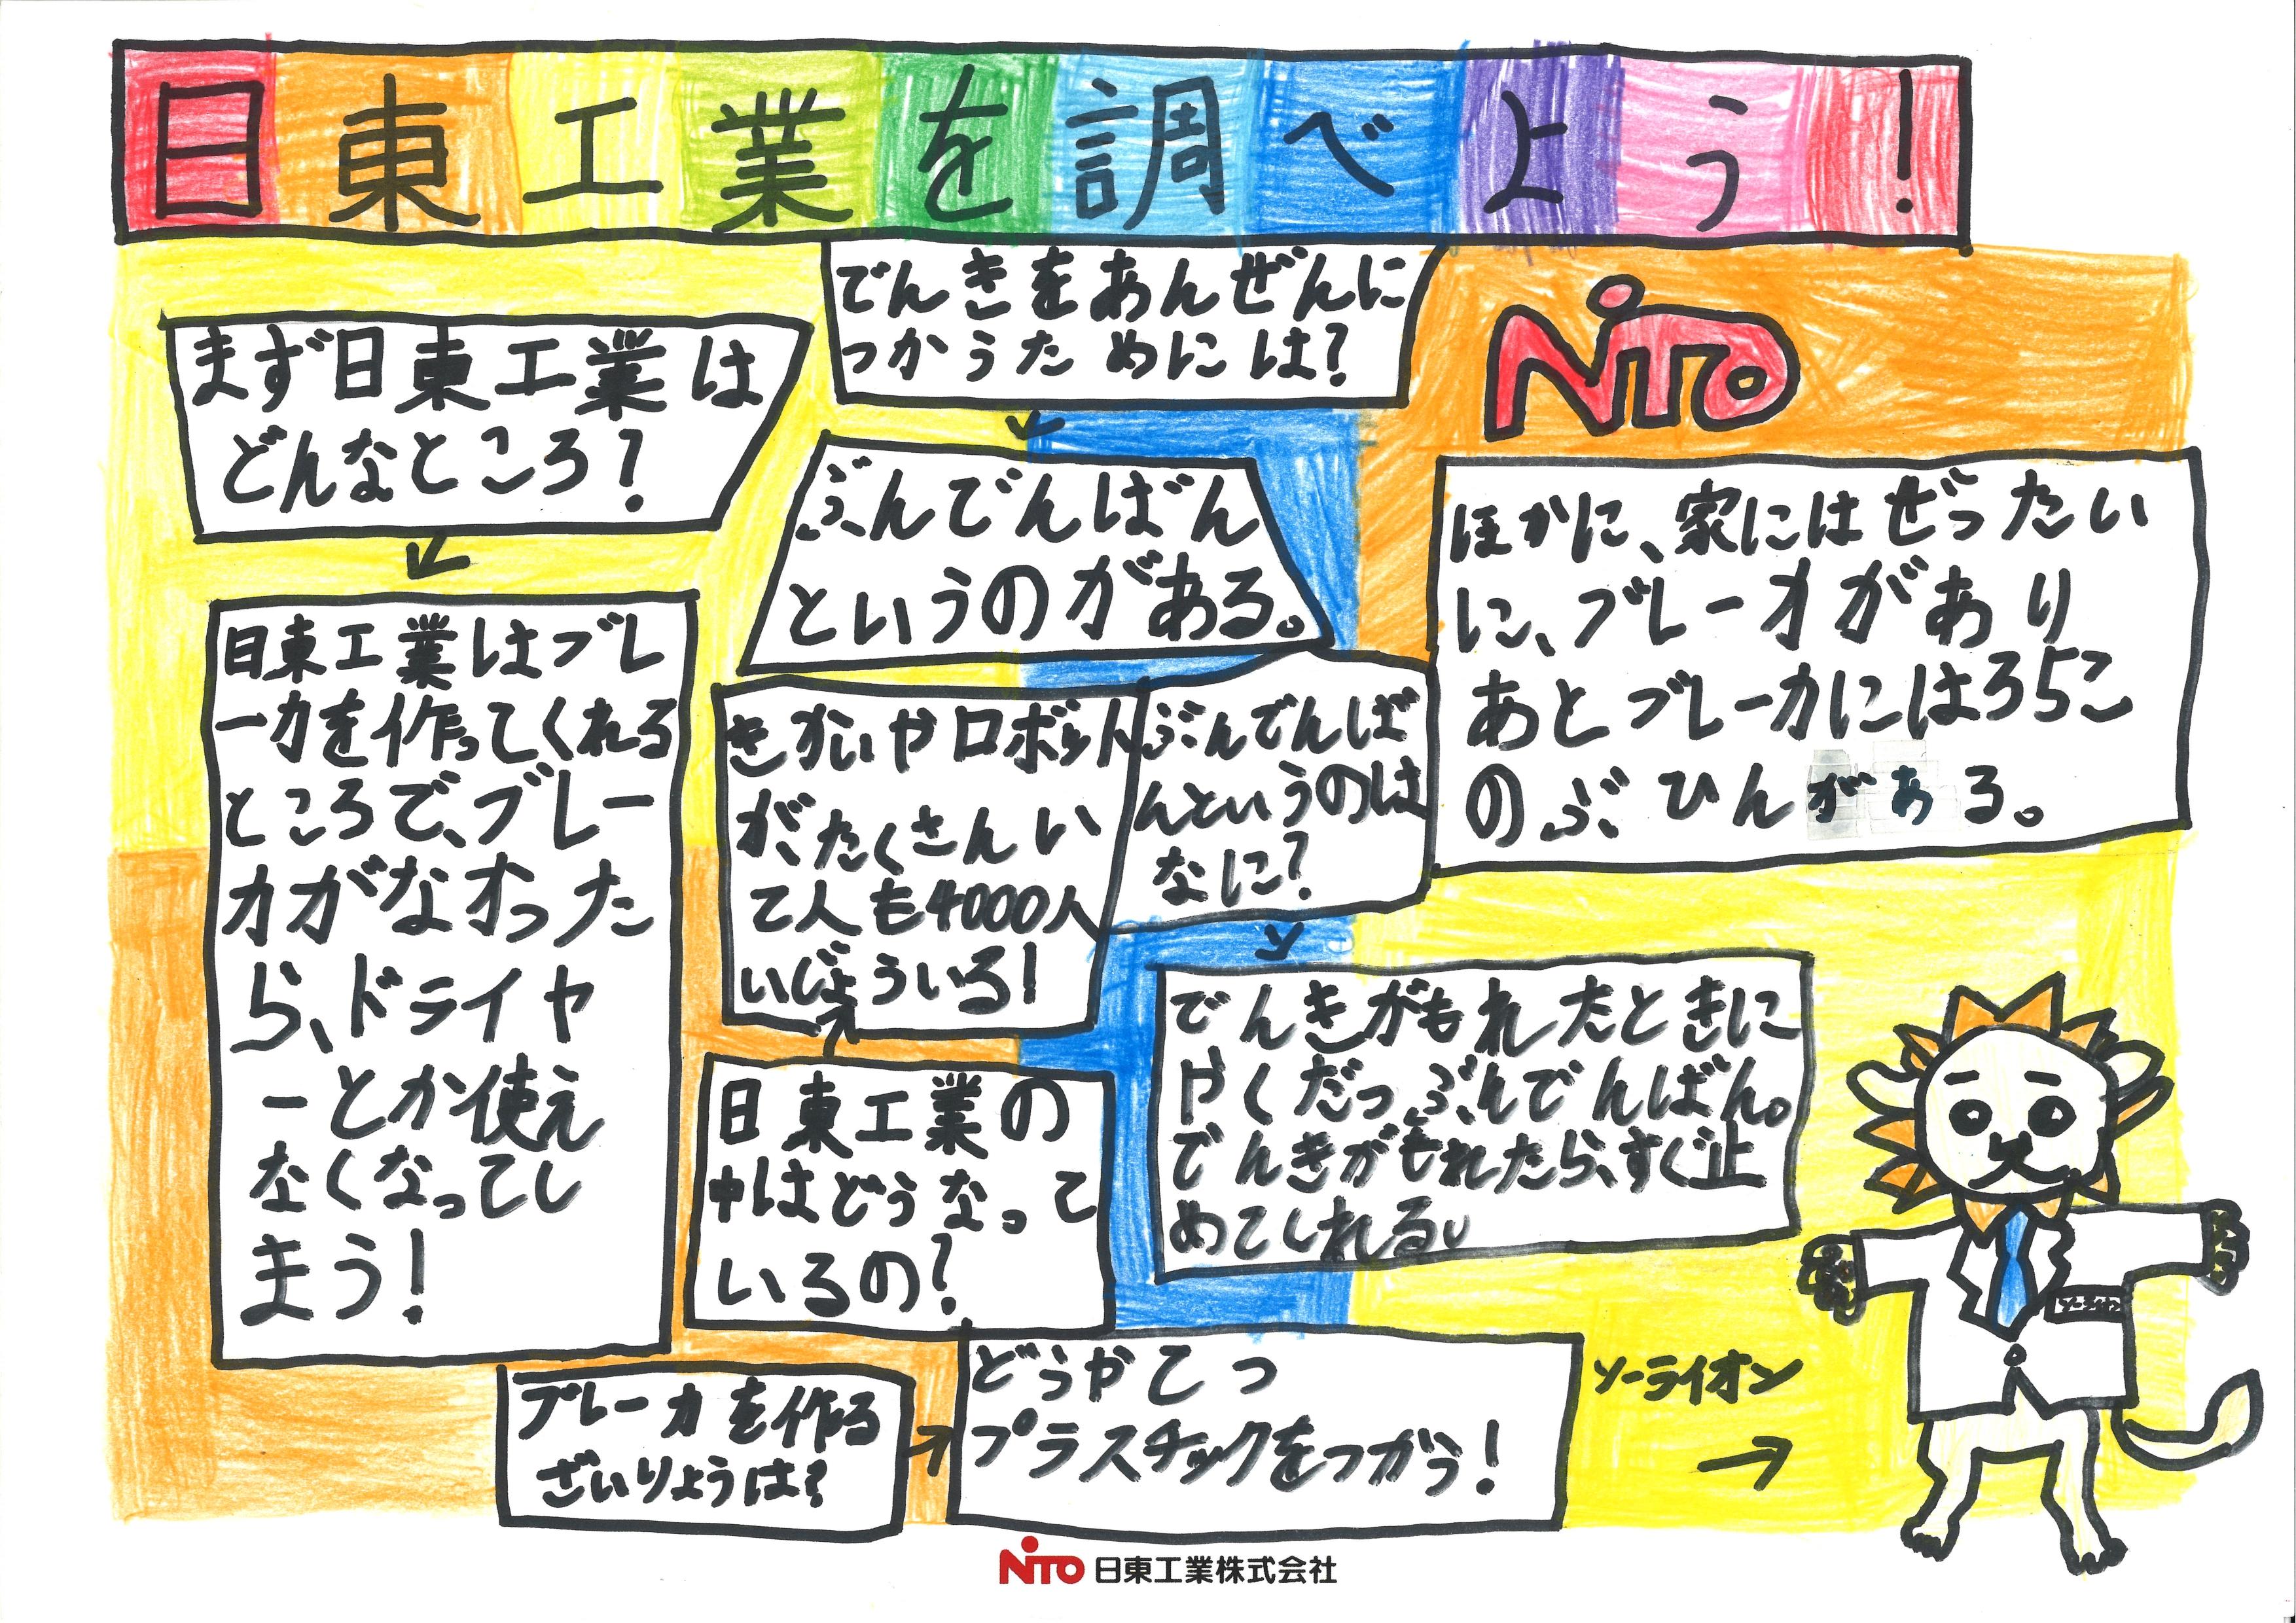 日東工業を調べよう!
まず日東工業は
どんなところ?
日東工業はブレ
ーカを作ってくれる
ところで、ブレー
カがなオった
ら、ドライヤ
ーとか使え
なくなってし
まう!
でんきをあんぜんに
つかうためには?
ぶんでんばん
というのがある。
NITO
ほかに、家にはぜったい
に、ブレーオがあり
あとブレーカにはろ5こ
のぶひんがある。
きかいやロボット
が、たくさんい
て人も4000人
いじょういる!
ぶんでんば
んというのは
なに?
でんきがもれたときに
やくだつぶんでんばん。
でんきがもれたら、すぐ止
めてくれる。
日東工業の
中はどうなって
いるの?
ブレーカを作る
ざいりょうは?
どうやてつ
プラスチックをつかう!
ソーライオン
ソーライオン
NITO 日東工業株式会社